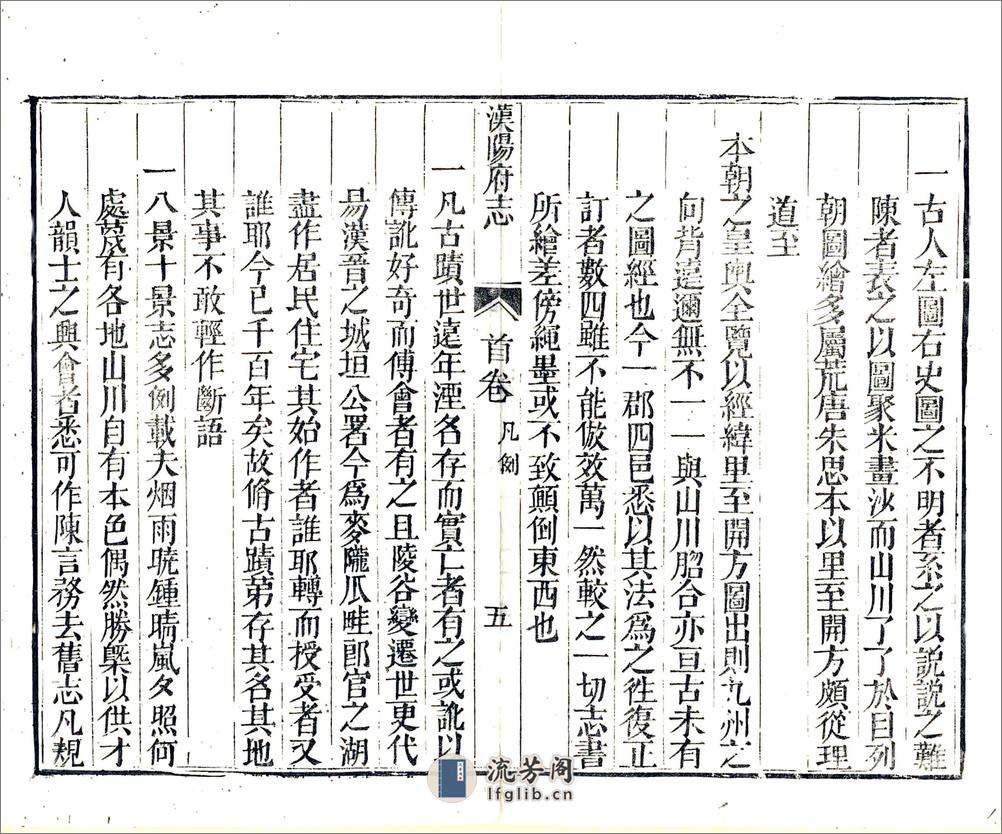 一古人左圖右史圖之不明者系之以説説之難
陳者表之以圖聚米畫沙而山川了了於目列
朝圖繪多屬荒唐朱思本以里至開方頗從理
道至
本朝之皇輿全覽以經緯里至開方圖出則九州之
向背遠邇無不一一與山川脗合亦亘古未有
之圖經也今一郡四邑悉以其法爲之徃復正
訂者數四雖不能倣效萬一然較之一切志書
所繪差傍繩墨或不致顛倒東西也
漢陽府志
首卷
凡例
五
一凡古蹟世遠年湮各存而實亡者有之或訛以
傳訛好奇而傅會者有之且陵谷變遷世更代
易漢晉之城垣公署今爲麥隴瓜畦郎官之湖
盡作居民住宅其始作者誰耶轉而授受者又
誰耶今已千百年矣故脩古蹟第存其名其地
其事不敢輕作斷語
一八景十景志多例載夫烟雨曉鍾晴嵐夕照何
處蔑有各地山川自有本色偶然勝槩以供才
人韻士之興會者悉可作陳言務去舊志凡規
流芳阁
lfglib.cn